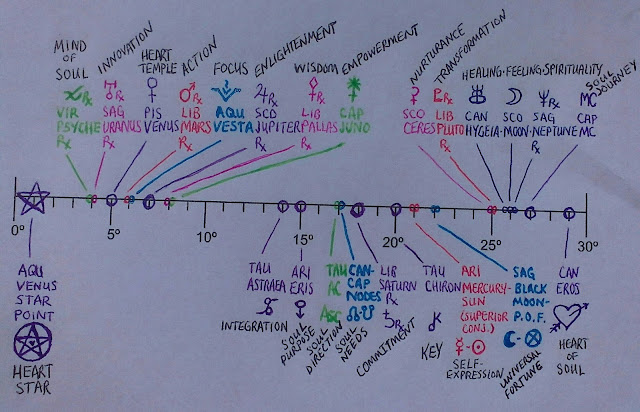 MIND
OF
SOUL
VIR
PSYCHE
Rx
INNOVATION
Rx
SAG
URANUS
Rx
HEART
TEMPLE
PIS
VENUS
ACTION
Rx
LIB
MARS
Rx
FOCUS
AQU
VESTA
ENLIGHTENMENT
Rx
SCO
JUPITER
Rx
WISDOM
Rx
LIB
PALLAS
Rx
EMPOWERMENT
CAP
JUNO
NURTURANCE
SCO
CERES
TRANSFORMATION
Rx
LIB
PLUTO
Rx
HEALING·FEELING·SPIRITUALITY
CAN
HYGEIA-
SCO
MOON-
Rx
SAG
NEPTUNE
Rx
SOUL
JOURNEY
MC
CAP
MC
0°
5°
10°
15°
20°
25°
30°
AQU
VENUS
STAR
POINT
HEART
STAR
TAU
ASTRAEA
INTEGRATION
ARI
ERIS
SOUL
PURPOSE
TAU
AC
ASC
SOUL
DIRECTION
CAN-
CAP
NODES
SOUL
NEEDS
LIB
SATURN
Rx
Rx
COMMITMENT
TAU
CHIRON
KEY
ARI
MERCURY-
SUN
(SUPERIOR
CONJ.)
SELF-
EXPRESSION
SAG
BLACK
MOON-
P.O.F.
UNIVERSAL
FORTUNE
CAN
EROS
HEART
OF
SOUL